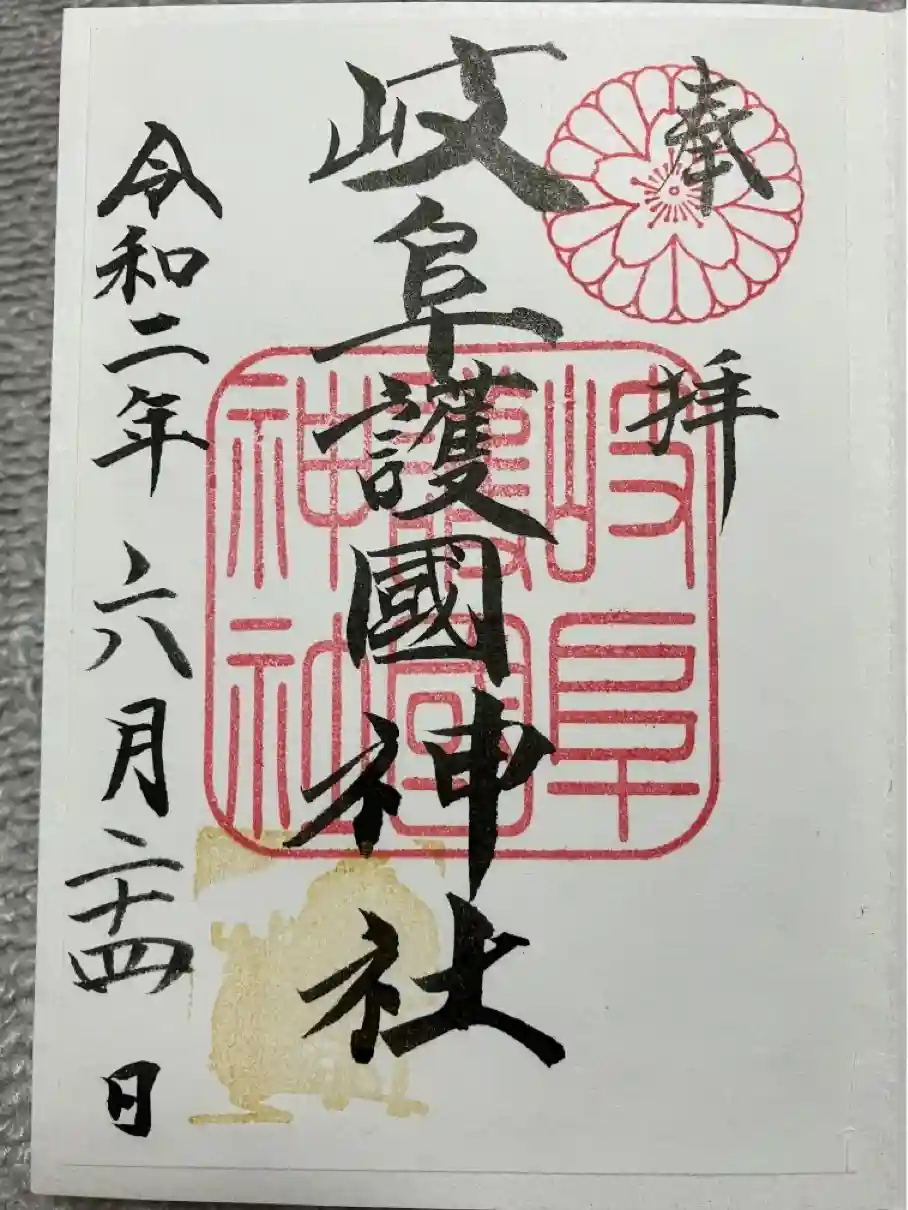 奉拝
岐阜護國神社
岐阜
護国
神社
令和二年六月二十四日